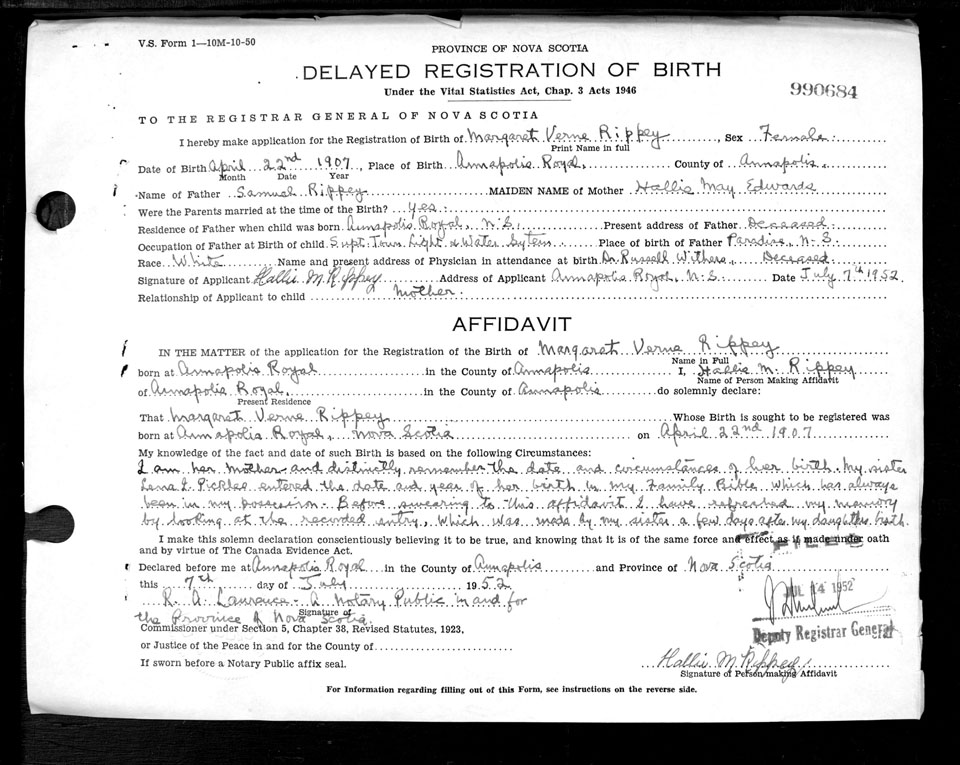 V.S. Form 1—10M-10-50
PROVINCE OF NOVA SCOTIA
DELAYED REGISTRATION OF BIRTH
Under the Vital Statistics Act, Chap. 3 Acts 1946
990684
TO THE REGISTRAR GENERAL OF NOVA SCOTIA
I hereby make application for the Registration of Birth of Margaret Verne Rippey Sex Female
Print Name in full
Date of Birth April 22nd 1907, Place of Birth Annapolis Royal, County of Annapolis.
Month Date Year
Name of Father Samuel Rippey MAIDEN NAME of Mother Hallie May Edwards
Were the Parents married at the time of the Birth? Yes.
Residence of Father when child was born Annapolis Royal, N.S. Present address of Father Deceased
Occupation of Father at Birth of child Supt. Town Light & Water Sytem Place of birth of Father Paradise, N.S.
Race White Name and present address of Physician in attendance at birth Dr Russell Withers, Deceased.
Signature of Applicant Hallie M. Rippey Address of Applicant Annapolis Royal, N.S. Date July 7th 1952.
Relationship of Applicant to child Mother.
AFFIDAVIT
IN THE MATTER of the application for the Registration of the Birth of Margaret Verne Rippey
Name in Full
born at Annapolis Royal in the County of Annapolis I, Hallie M. Rippey
Name of Person Making Affidavit
of Annapolis Royal, in the County of Annapolis do solemnly declare:
Present Residence
That Margaret Verne Rippey Whose Birth is sought to be registered was
born at Annapolis Royal, Nova Scotia on April 22nd 1907
My knowledge of the fact and date of such Birth is based on the following Circumstances:
I am her mother and distinctly remember the date and circumstances of her birth. My sister
Lena I. Pickles entered the date and year of her birth in my Family Bible which has always
been in my possession. Before swearing to this affidavit I have refreshed my memory
by looking at the recorded entry, which was made by my sister a few days after my daughters birth.
I make this solemn declaration conscientiously believing it to be true, and knowing that it is of the same force and effect as if made under oath
and by virtue of The Canada Evidence Act.
FILED
Declared before me at Annapolis Royal in the County of Annapolis and Province of Nova Scotia
this 7th day of July 1952
JUL 14 1952
R. A. Laurence - A Notary Public in and for
the Province of Nova Scotia
Signature of
Commissioner under Section 5, Chapter 38, Revised Statutes, 1923,
Deputy Registrar General
or Justice of the Peace in and for the County of
If sworn before a Notary Public affix seal.
Hallie M Rippey
Signature of Person making Affidavit
For Information regarding filling out of this Form, see instructions on the reverse side.